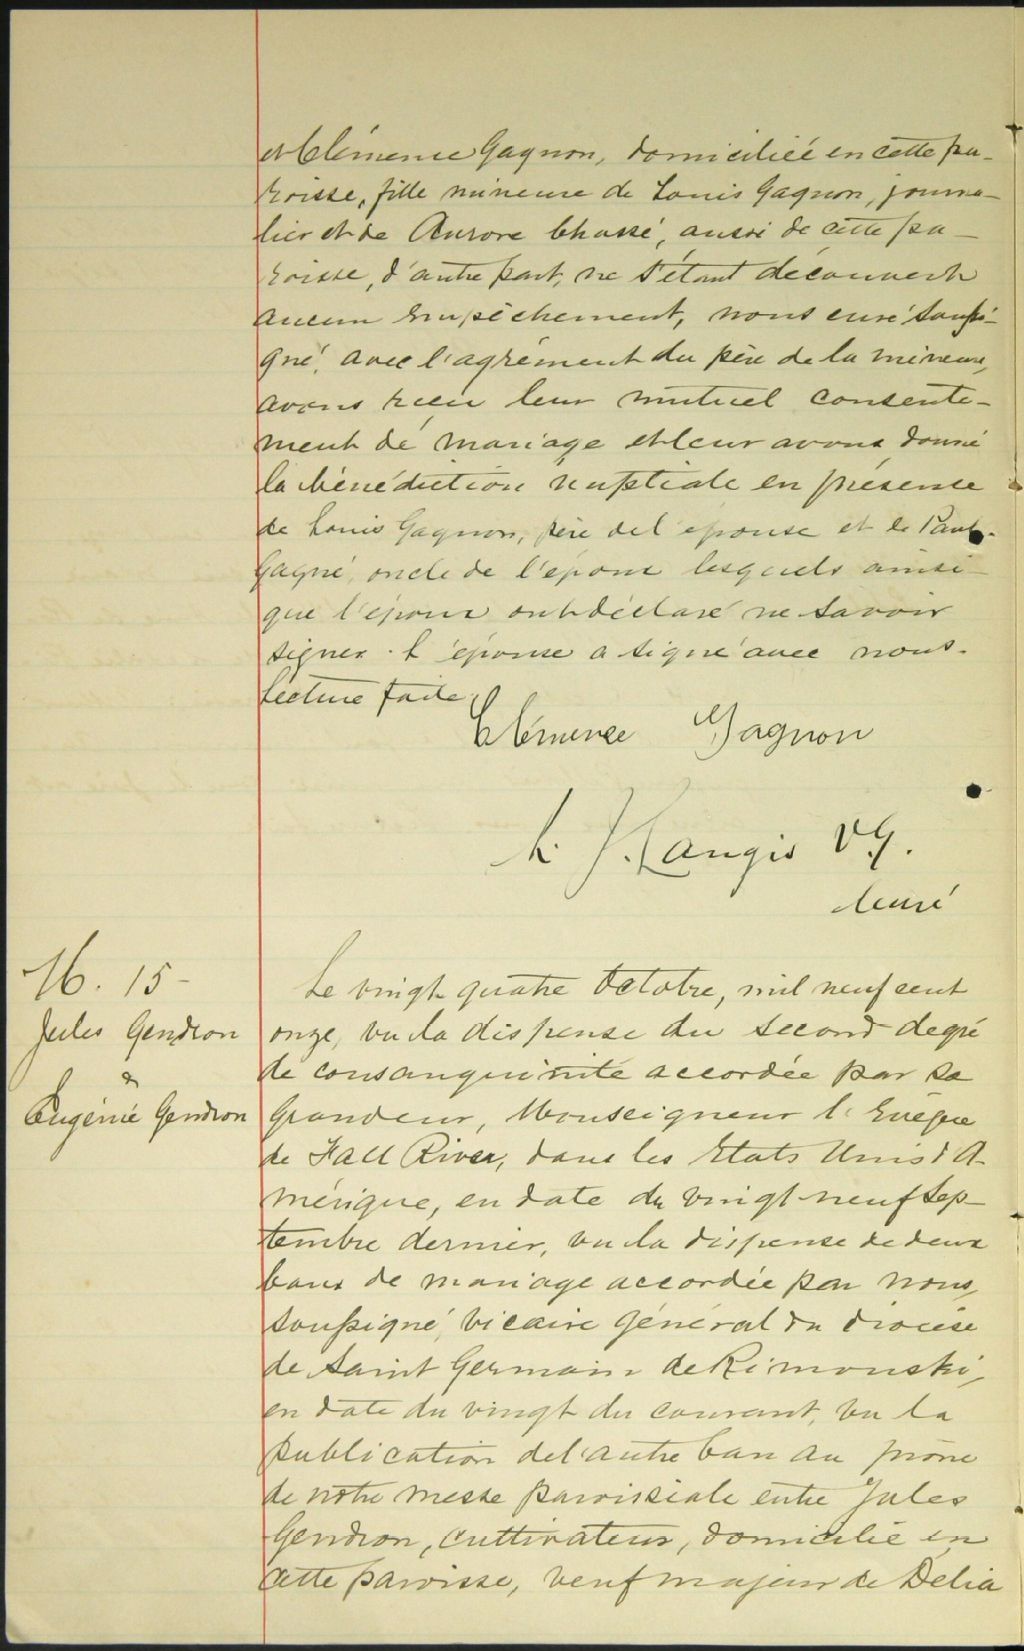 et Clémence Gagnon, domiciliée en cette pa-
roisse, fille mineure de Louis Gagnon, journa-
lier et de Aurore Chassé, aussi de cette pa-
roisse, d'autre part, ne s'étant découvert
aucun empêchement, nous curé soussi-
gné, avec l'agrément du père de la mineure,
avons reçu leur mutuel consente-
ment de mariage et leur avons donné
la bénédiction nuptiale en présence
de Louis Gagnon, père de l'épouse et de Paul
Gagné, oncle de l'époux lesquels ainsi
que l'époux ont déclaré ne savoir
signer. L'épouse a signé avec nous.
Lecture faite.
Clémence Gagnon
L. J. Langis V.G.
Curé
M. 15-
Jules Gendron
&
Eugénie Gendron
Le vingt quatre Octobre, mil neuf cent
onze, vu la dispense du second degré
de consanguinité accordée par sa
Grandeur, Monseigneur l'Evêque
de Fall River, dans les Etats Unis d'A-
mérique, en date du vingt neuf Sep-
tembre dernier, vu la dispense de deux
bans de mariage accordée par nous,
soussigné, vicaire général du diocèse
de Saint Germain de Rimouski,
en date du vingt du courant, vu la
publication de l'autre ban au prône
de notre messe paroissiale entre Jules
Gendron, cultivateur, domicilié en
cette paroisse, veuf majeur de Délia